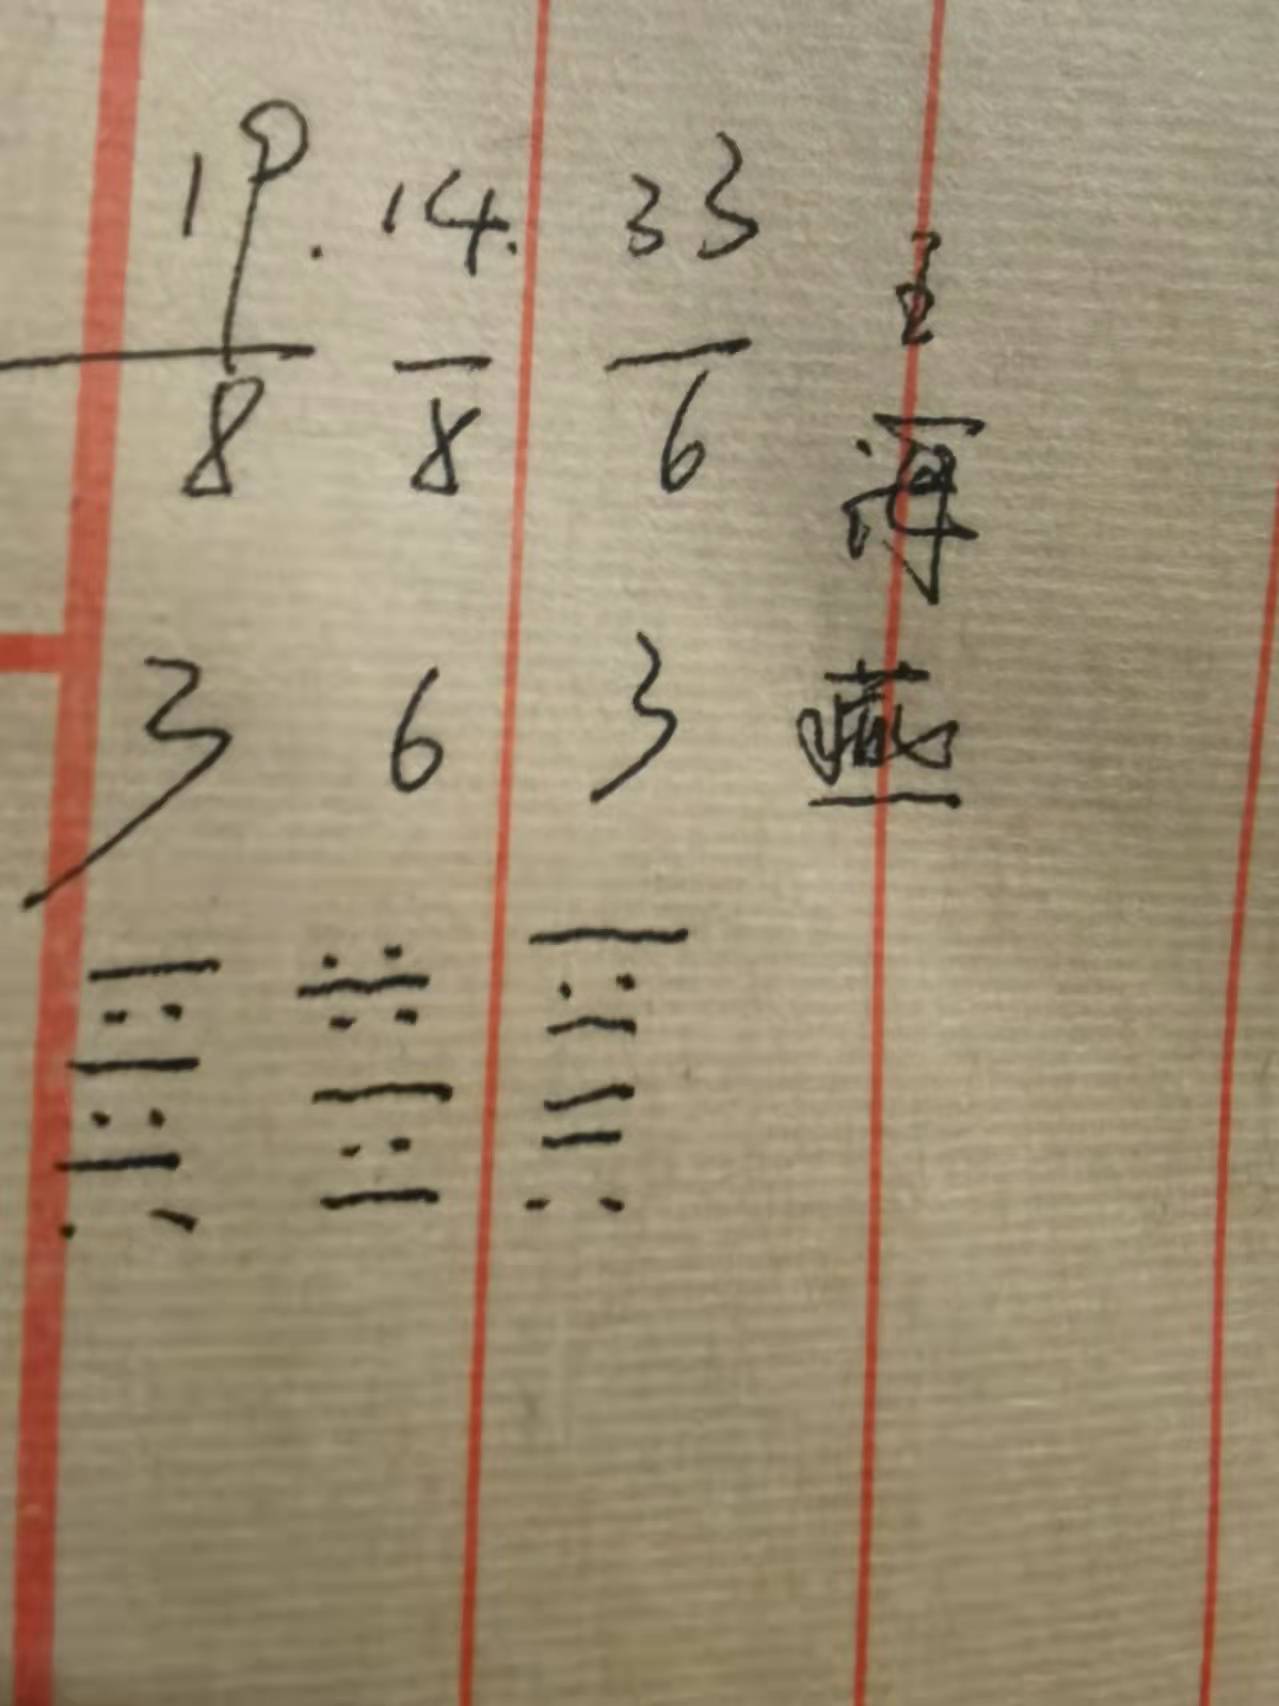 19. 14. 33
8 8 6
3 6 3
藏